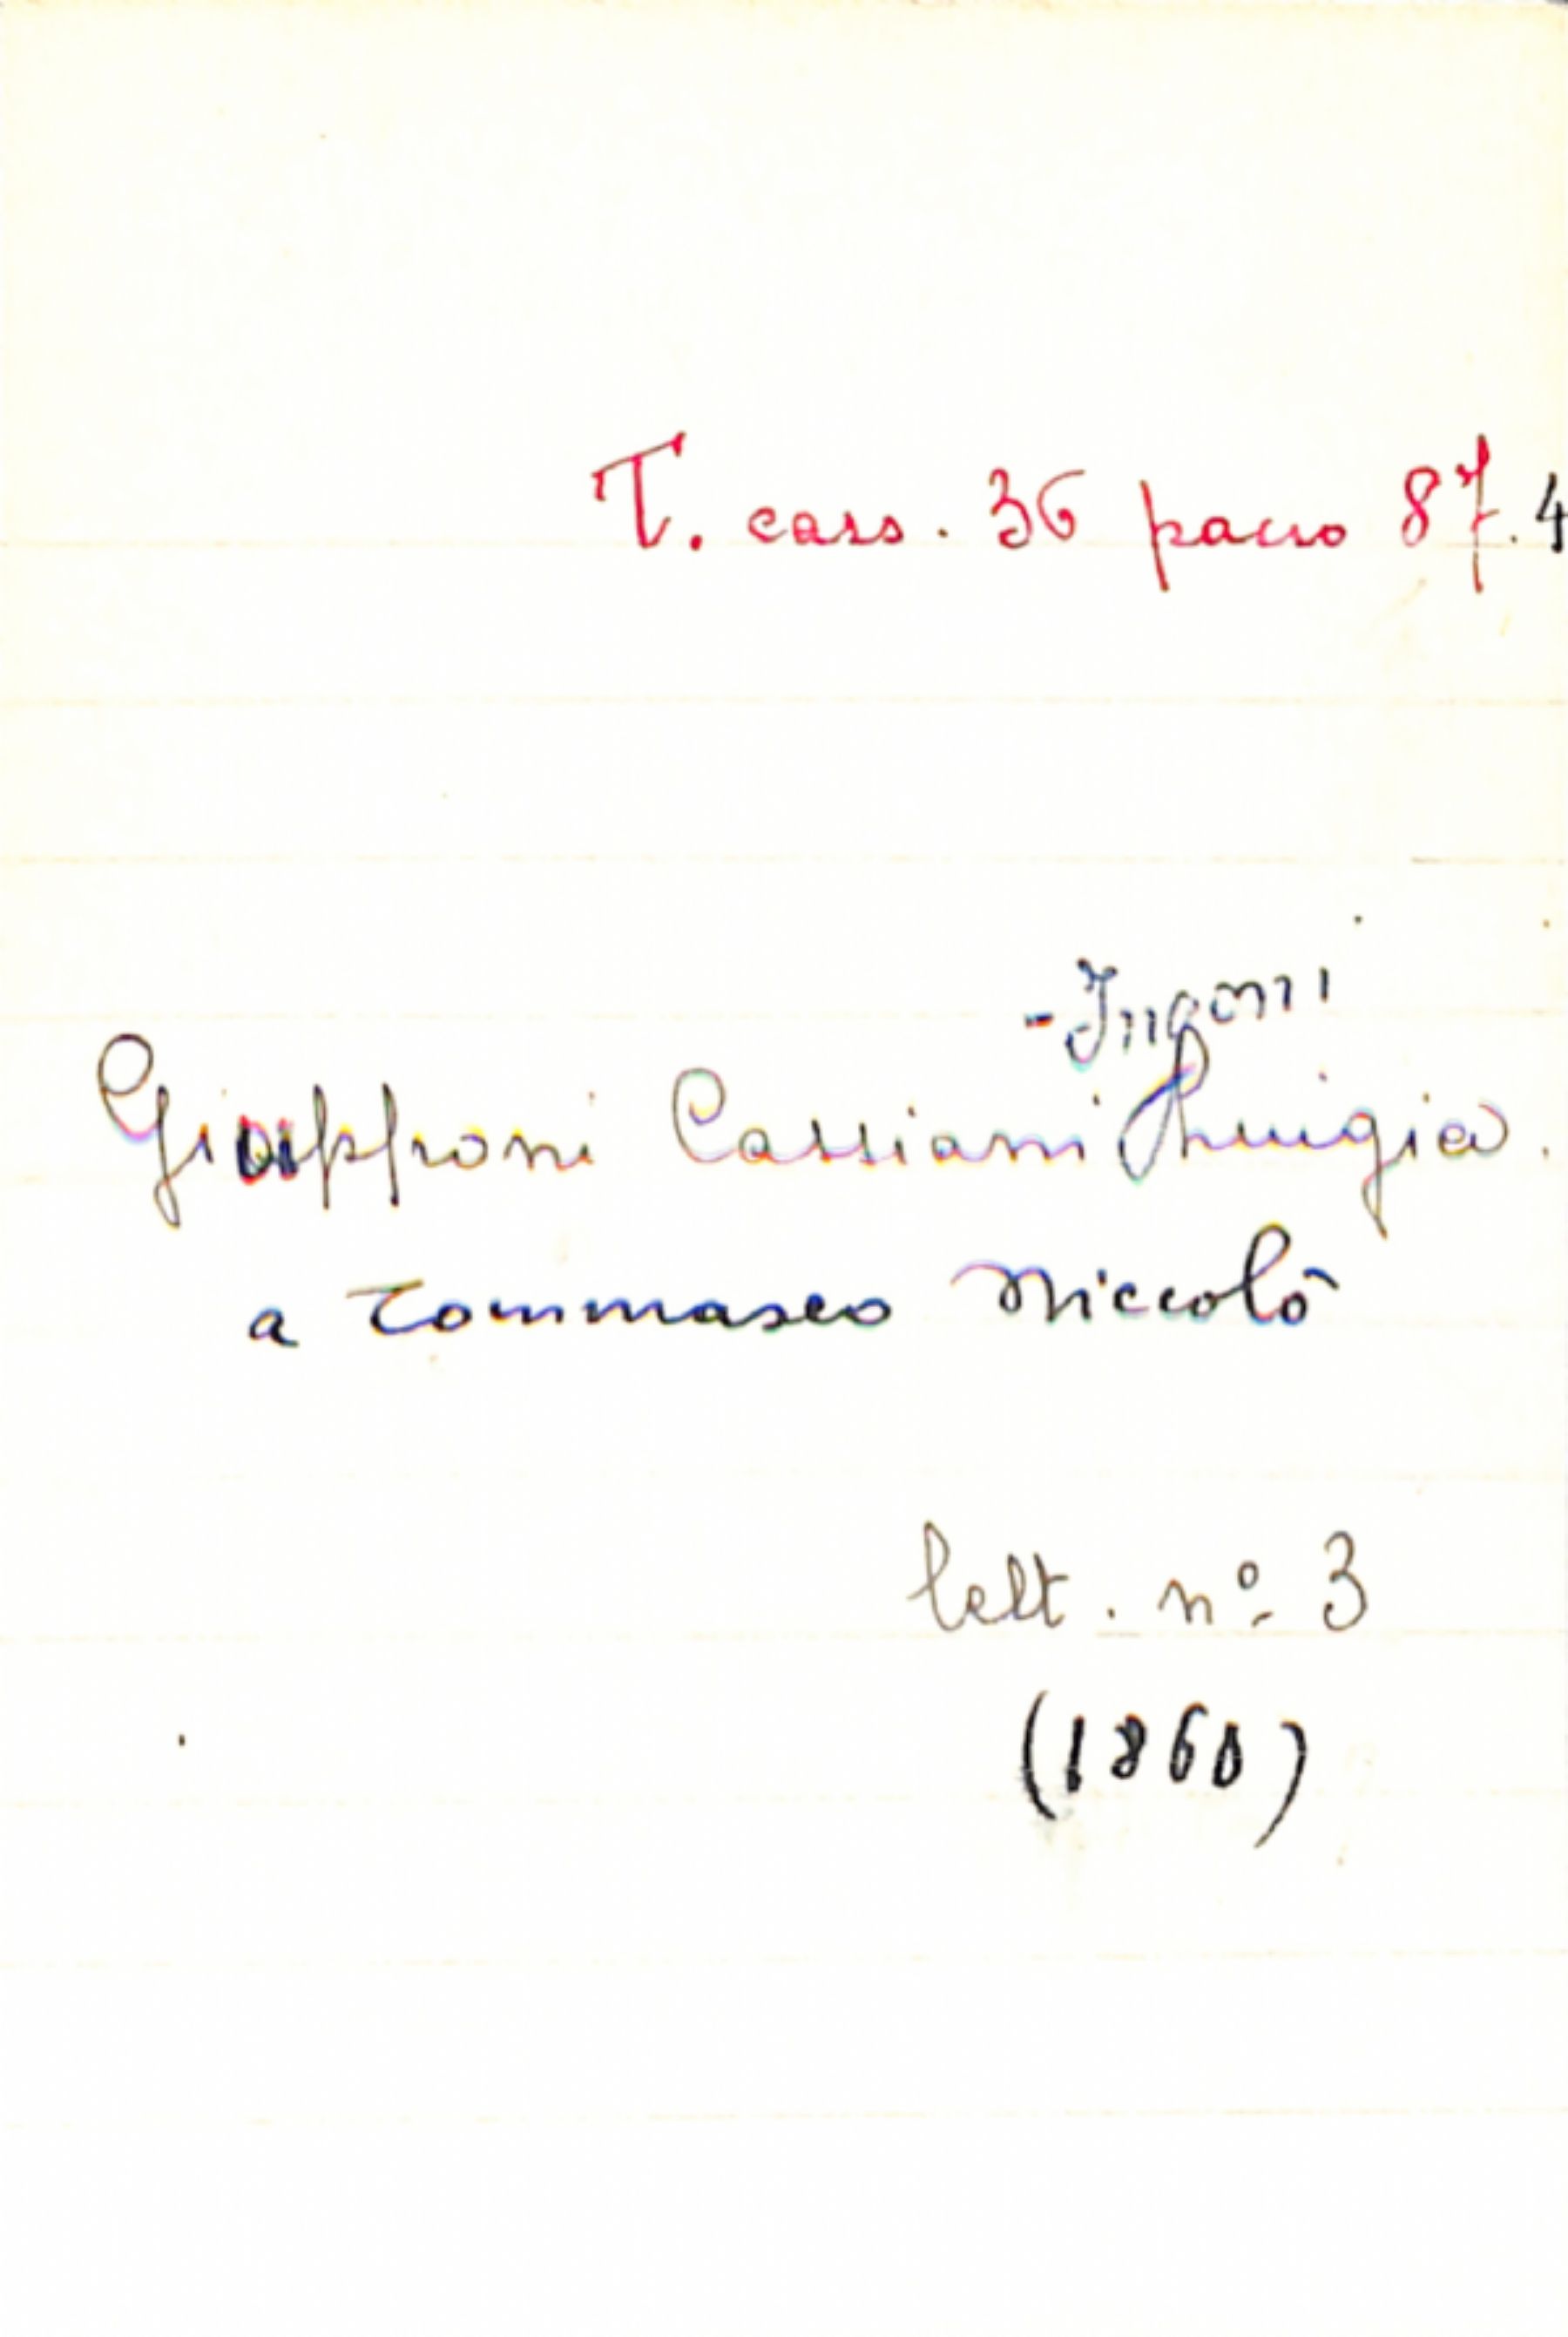 T. cass. 36 pacco 87.4
-Ingoni
Giapponi Cassiani Luigia.
a Tommaseo Niccolò
lett. nº 3
(1860)